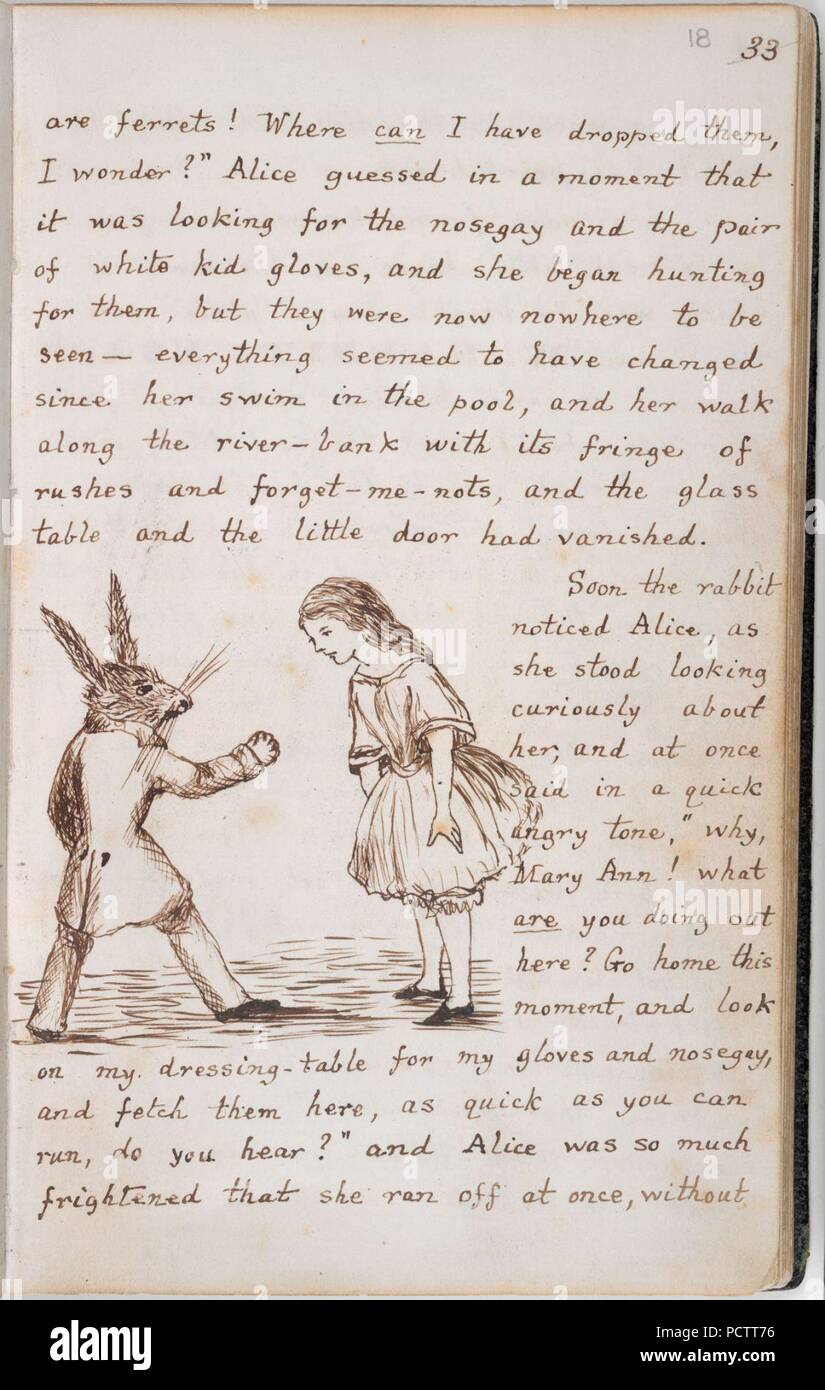 18 33
are ferrets! Where can I have dropped them,
I wonder?" Alice guessed in a moment that
it was looking for the nosegay and the pair
of white kid gloves, and she began hunting
for them, but they were now nowhere to be
seen — everything seemed to have changed
since her swim in the pool, and her walk
along the river-bank with its fringe of
rushes and forget-me-nots, and the glass
table and the little door had vanished.
Soon the rabbit
noticed Alice, as
she stood looking
curiously about
her, and at once
said in a quick
angry tone, "why,
Mary Ann! what
are you doing out
here? Go home this
moment, and look
on my dressing-table for my gloves and nosegay,
and fetch them here, as quick as you can
run, do you hear?" and Alice was so much
frightened that she ran off at once, without
alamy
Image ID: PCTT76
www.alamy.com